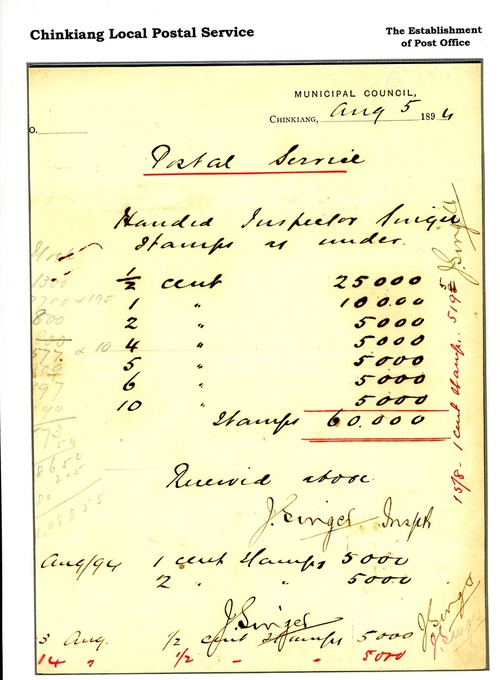 Chinkiang Local Postal Service
The Establishment
of Post Office
MUNICIPAL COUNCIL,
CHINKIANG, Aug 5 1894
O.
Postal Service
Handed Inspector Singer
Stamps as under.
½ cent 25000
1 " 10.000
2 " 5000
4 " 5000
5 " 5000
6 " 5000
10 " 5000
Stamps 60.000
Received above
J. Singer Inspt
Aug/94 1 cent Stamps 5000
2 " " 5000
J. Singer
3 Aug. ½ cent Stamps 5000
14 " ½ " " 5000
J. Singer
15/8 - 1 cent Stamps. 5195
J. Singer